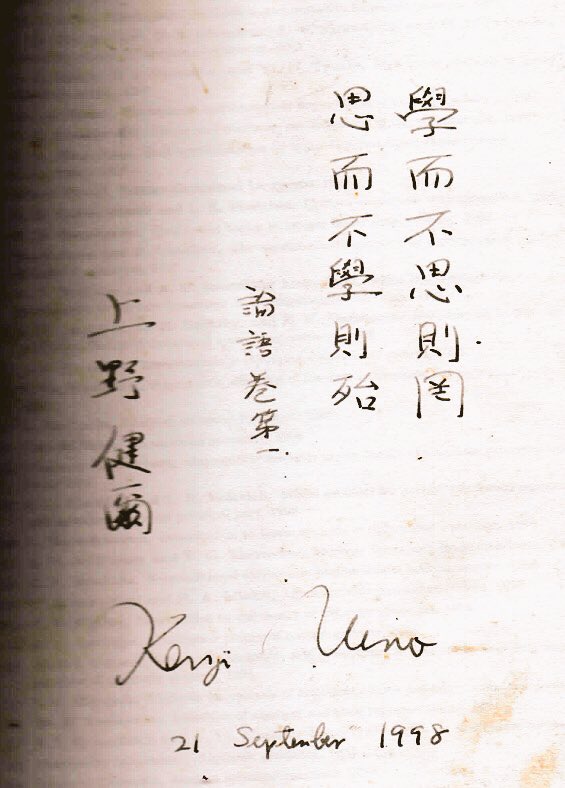 學而不思則罔
思而不學則殆
論語卷第一
上野健爾
Kenji Ueno
21 September 1998